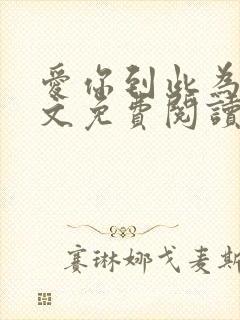 愛你到此為
文免費閱讀
賽琳娜戈麦斯